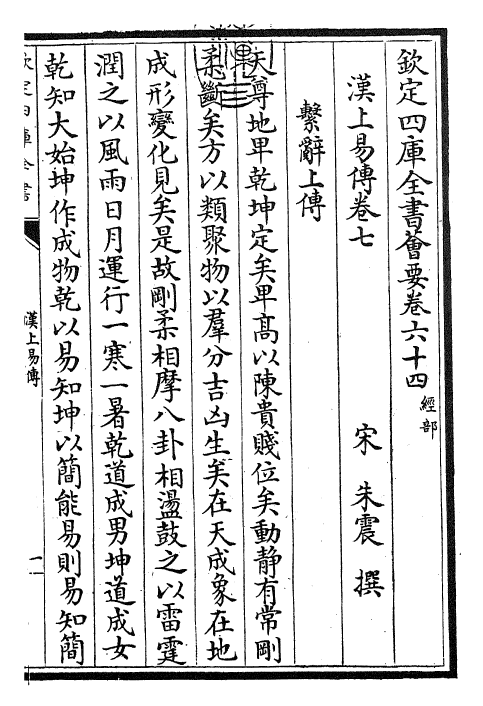 欽定四庫全書薈要卷六十四 經部
漢上易傳卷七 宋 朱震 撰
繫辭上傳
天尊地卑乾坤定矣卑高以陳貴賤位矣動靜有常剛
柔斷矣方以類聚物以羣分吉凶生矣在天成象在地
成形變化見矣是故剛柔相摩八卦相盪鼓之以雷霆
潤之以風雨日月運行一寒一暑乾道成男坤道成女
乾知大始坤作成物乾以易知坤以簡能易則易知簡
欽定四庫全書
漢上易傳
一